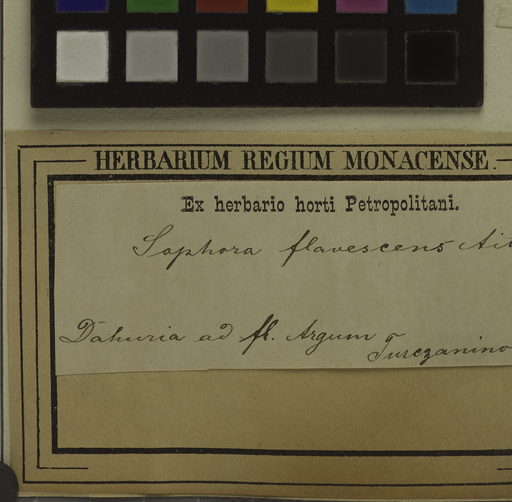 HERBARIUM REGIUM MONACENSE.
Ex herbario horti Petropolitani.
Sophora flavescens Ait
Dahuria ad fl. Argum
Turczanino